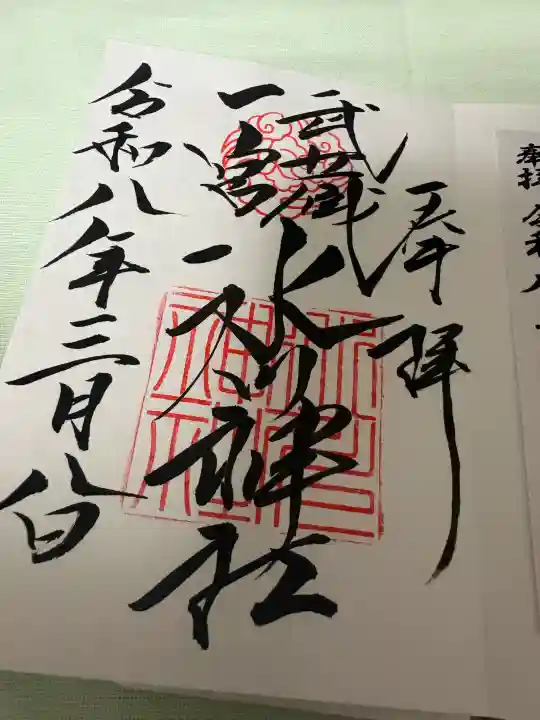 奉拝
武蔵
一宮
氷川神社
令和八年三月八日
奉拝 令和八